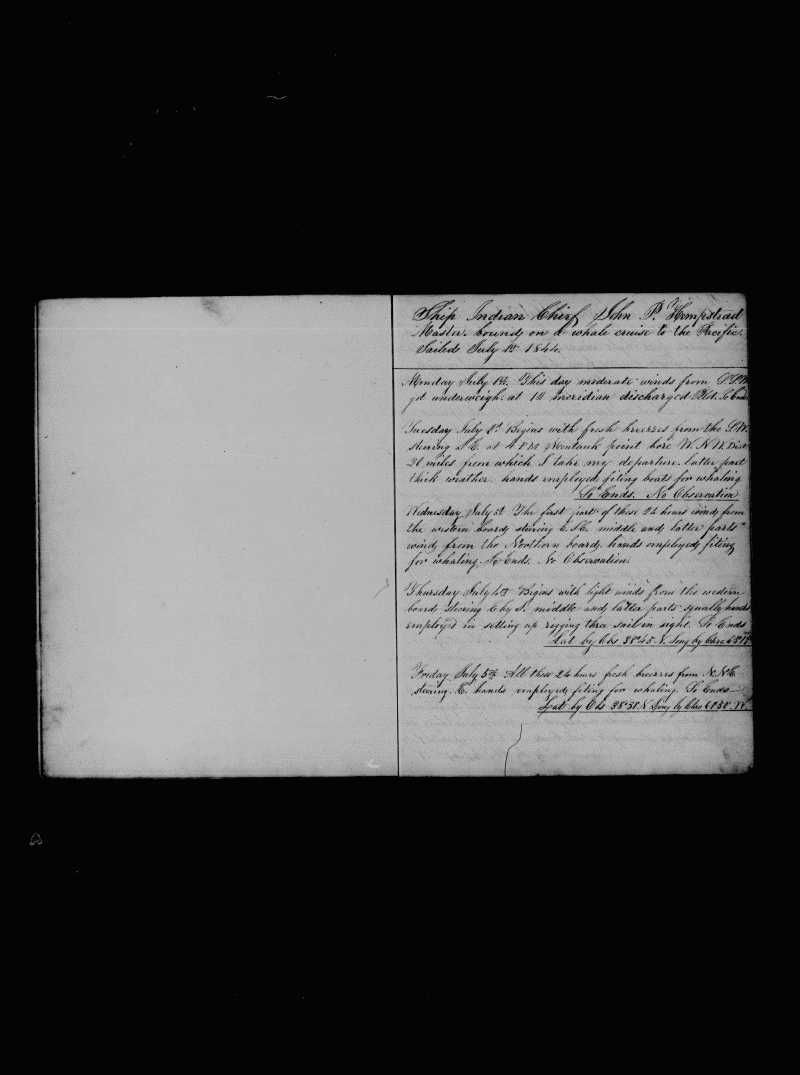 Ship Indian Chief John P. Hempstead
Master. bound on a whale cruise to the Pacific.
Sailed July 1st 1844.
Monday July 1st. This day moderate winds from
got underweigh. at 10 meridian discharged Pilot. So Ends
Tuesday July 2d Begins with fresh breezes from the S.W.
steering S.E. at 4 P.M. Montauk point bore W.N.W. Dist.
20 miles from which I take my departure. latter part
thick weather. hands employed fiting boats for whaling
So Ends. No Observation
Wednesday July 3d The first part of these 24 hours winds from
the western board, steering E.S.E. middle and latter parts
wind from the Northern board. hands employed fiting
for whaling. So Ends. No Observation.
Thursday July 4th Begins with light winds from the western
board steering E by S. middle and latter parts squally hands
employed in setting up rigging thre sail in sight. So Ends
Lat by Obs 38°45 N. Long by Chro
Friday July 5th All these 24 hours fresh breezes from N.N.E.
steering. E. hands employed fiting for whaling. So Ends
Lat by Obs 38°38 N Long by Chro W.